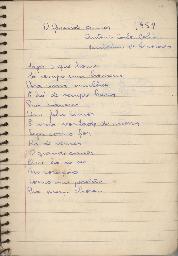 O Grande amor 1959
Antonio Carlos Jobim
Vinicius de Moraes
Haja o que houver
Há sempre um homem
Para uma mulher
E há de sempre haver
Para
Um falso amor
E uma vontade de morrer
Seja como for
Há de vencer
O grande amor
Que há de ser
No coração
Como um perdão
Pra quem chorou